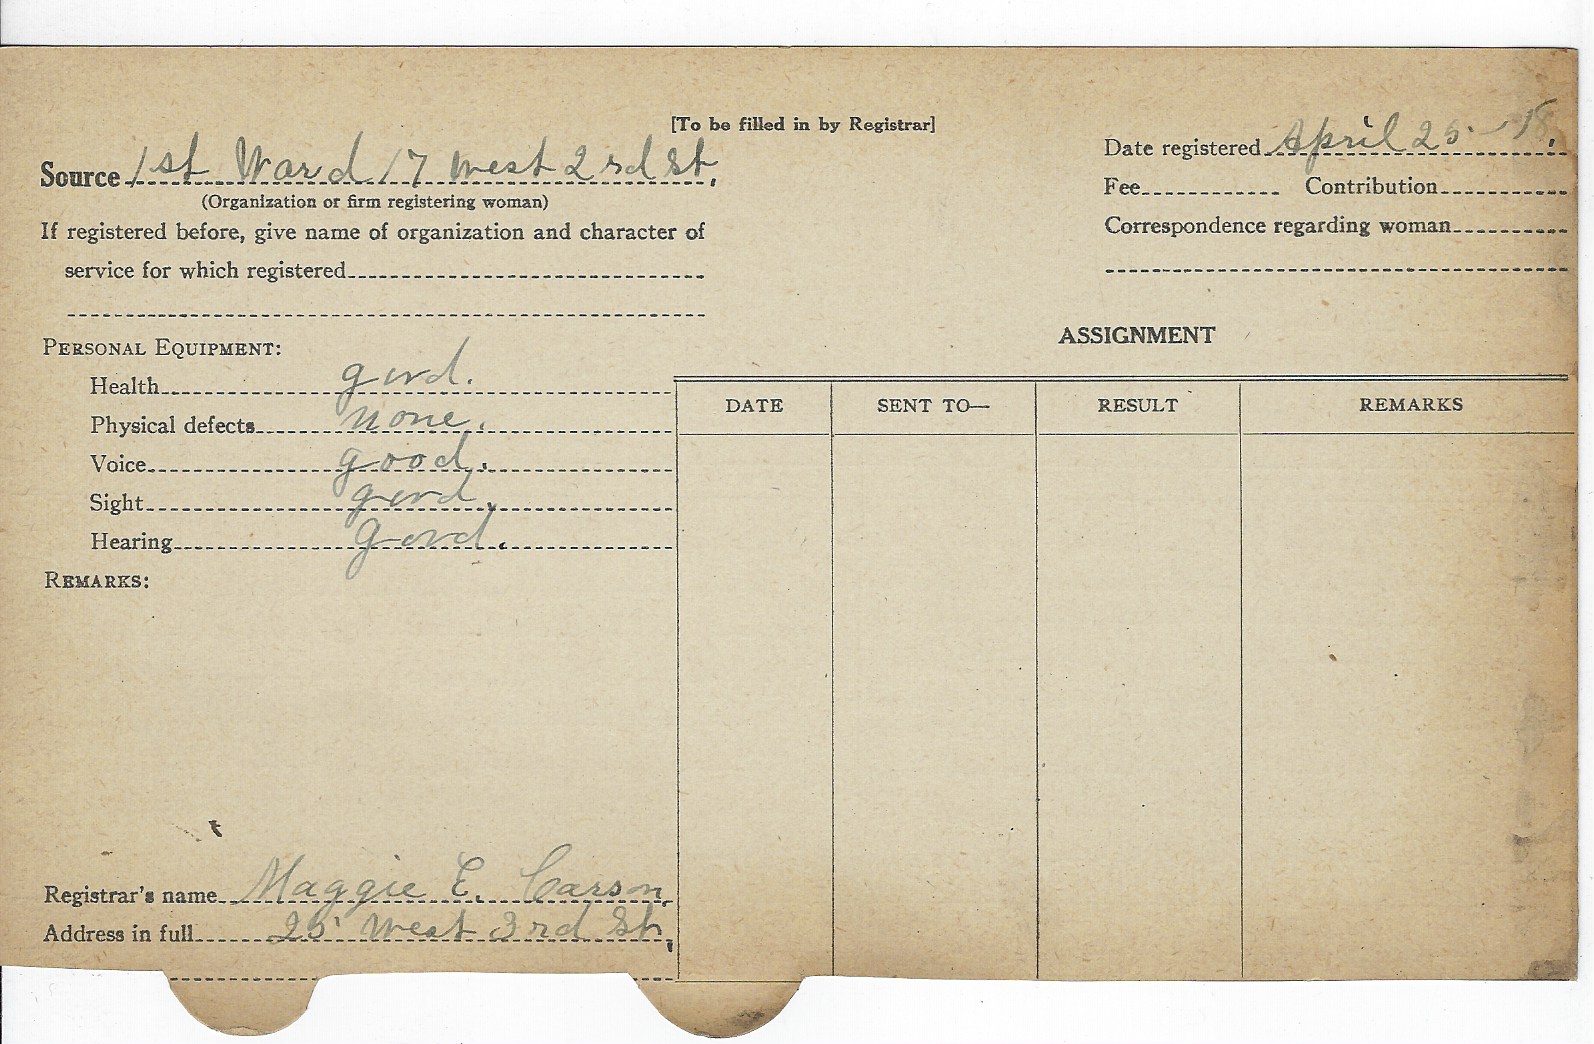 [To be filled in by Registrar]
Source 1st Ward 17 West 2rd St.
(Organization or firm registering woman)
If registered before, give name of organization and character of
service for which registered
Date registered April 25 - 18.
Fee Contribution
Correspondence regarding woman
PERSONAL EQUIPMENT:
Health good.
Physical defects none.
Voice good.
Sight good.
Hearing good.
REMARKS:
ASSIGNMENT
DATE SENT TO— RESULT REMARKS
Registrar's name Maggie E. Carson,
Address in full 25 West 3rd St,